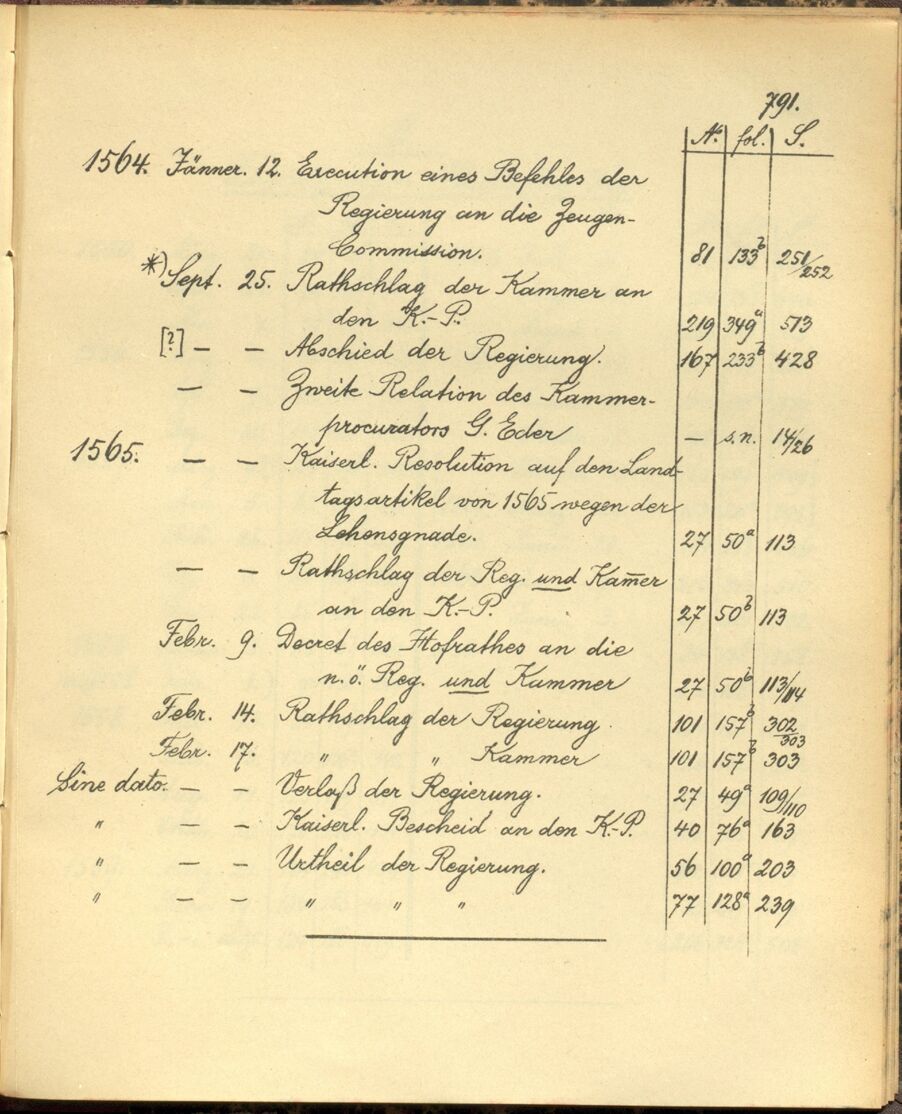 791.
Nº. fol. S.
1564. Jänner. 12. Execution eines Befehles der
Regierung an die Zeugen-
Commission. 81 133b 251/252
*) Sept. 25. Rathschlag der Kammer an
den K.-P. 219 349a 513
[?] — — Abschied der Regierung. 167 233b 428
— — Zweite Relation des Kammer-
procurators G. Eder — s.n. 14/26
1565. — — Kaiserl. Resolution auf den Land-
tagsartikel von 1565 wegen der
Lehensgnade. 27 50a 113
— — Rathschlag der Reg. und Kam̅er
an den K.-P. 27 50b 113
Febr. 9. Decret des Hofrathes an die
n.ö. Reg. und Kammer 27 50b 113/114
Febr. 14. Rathschlag der Regierung 101 157b 302/303
Febr. 17. " " Kammer 101 157b 303
Sine dato. — — Verlaß der Regierung. 27 49a 109/110
" — — Kaiserl. Bescheid an den K.-P. 40 76a 163
" — — Urtheil der Regierung. 56 100a 203
" — — " " " 77 128a 239